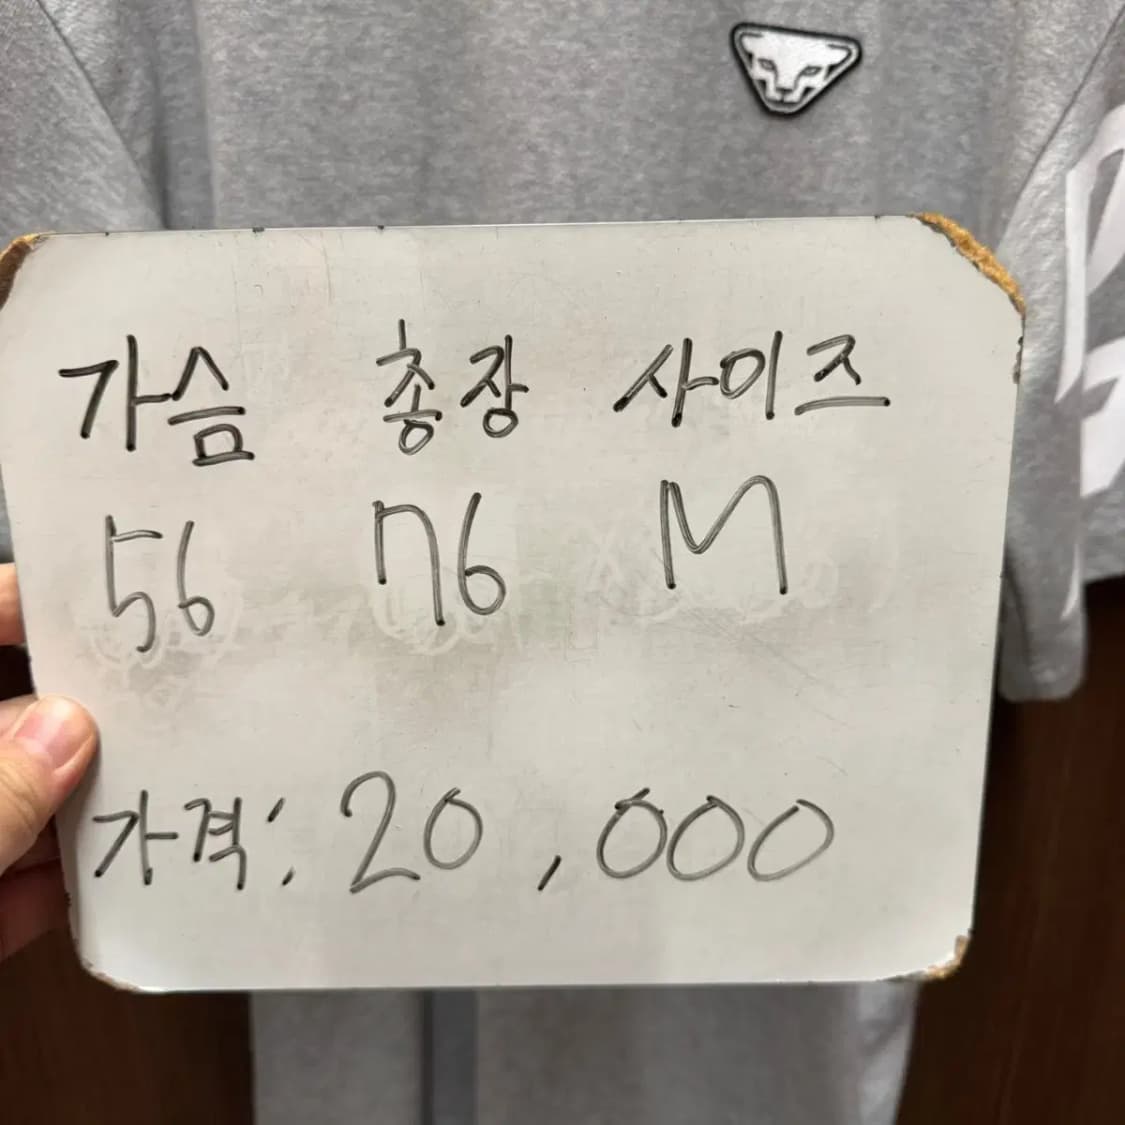 가슴 총장 사이즈
56 76 M
가격: 20,000